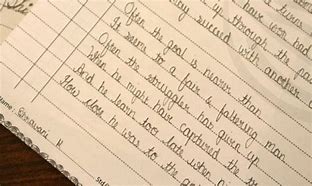 turns
might have won had
may succeed with another
Often the goal is nearer than
It seems to a fair & faltering man
Often the struggler has given up
When he might have captured the
And he learn too late when
How close he was to the go
Name: Shravani H